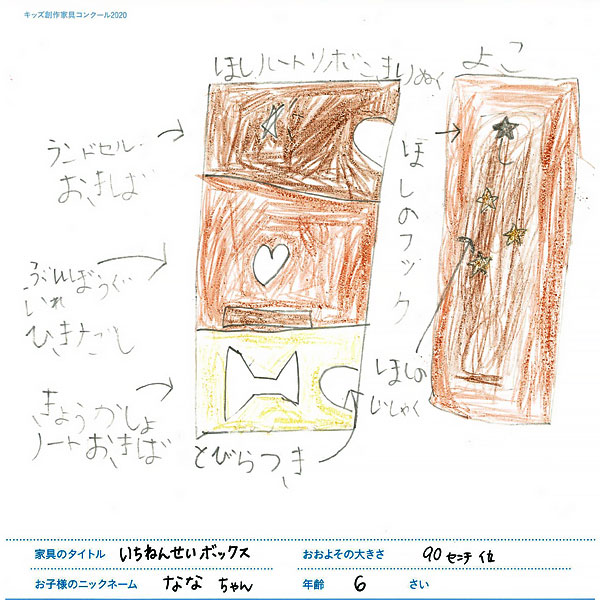 キッズ創作家具コンクール2020
ほし ハート リボン きりぬく
よこ
ランドセル
おきば
ほしのフック
ぶんぼうぐ
いれ
ひきだし
ほしの
じしゃく
きょうかしょ
ノートおきば
とびらつき
家具のタイトル いちねんせいボックス
おおよその大きさ 90センチ位
お子様のニックネーム なな ちゃん
年齢 6 さい